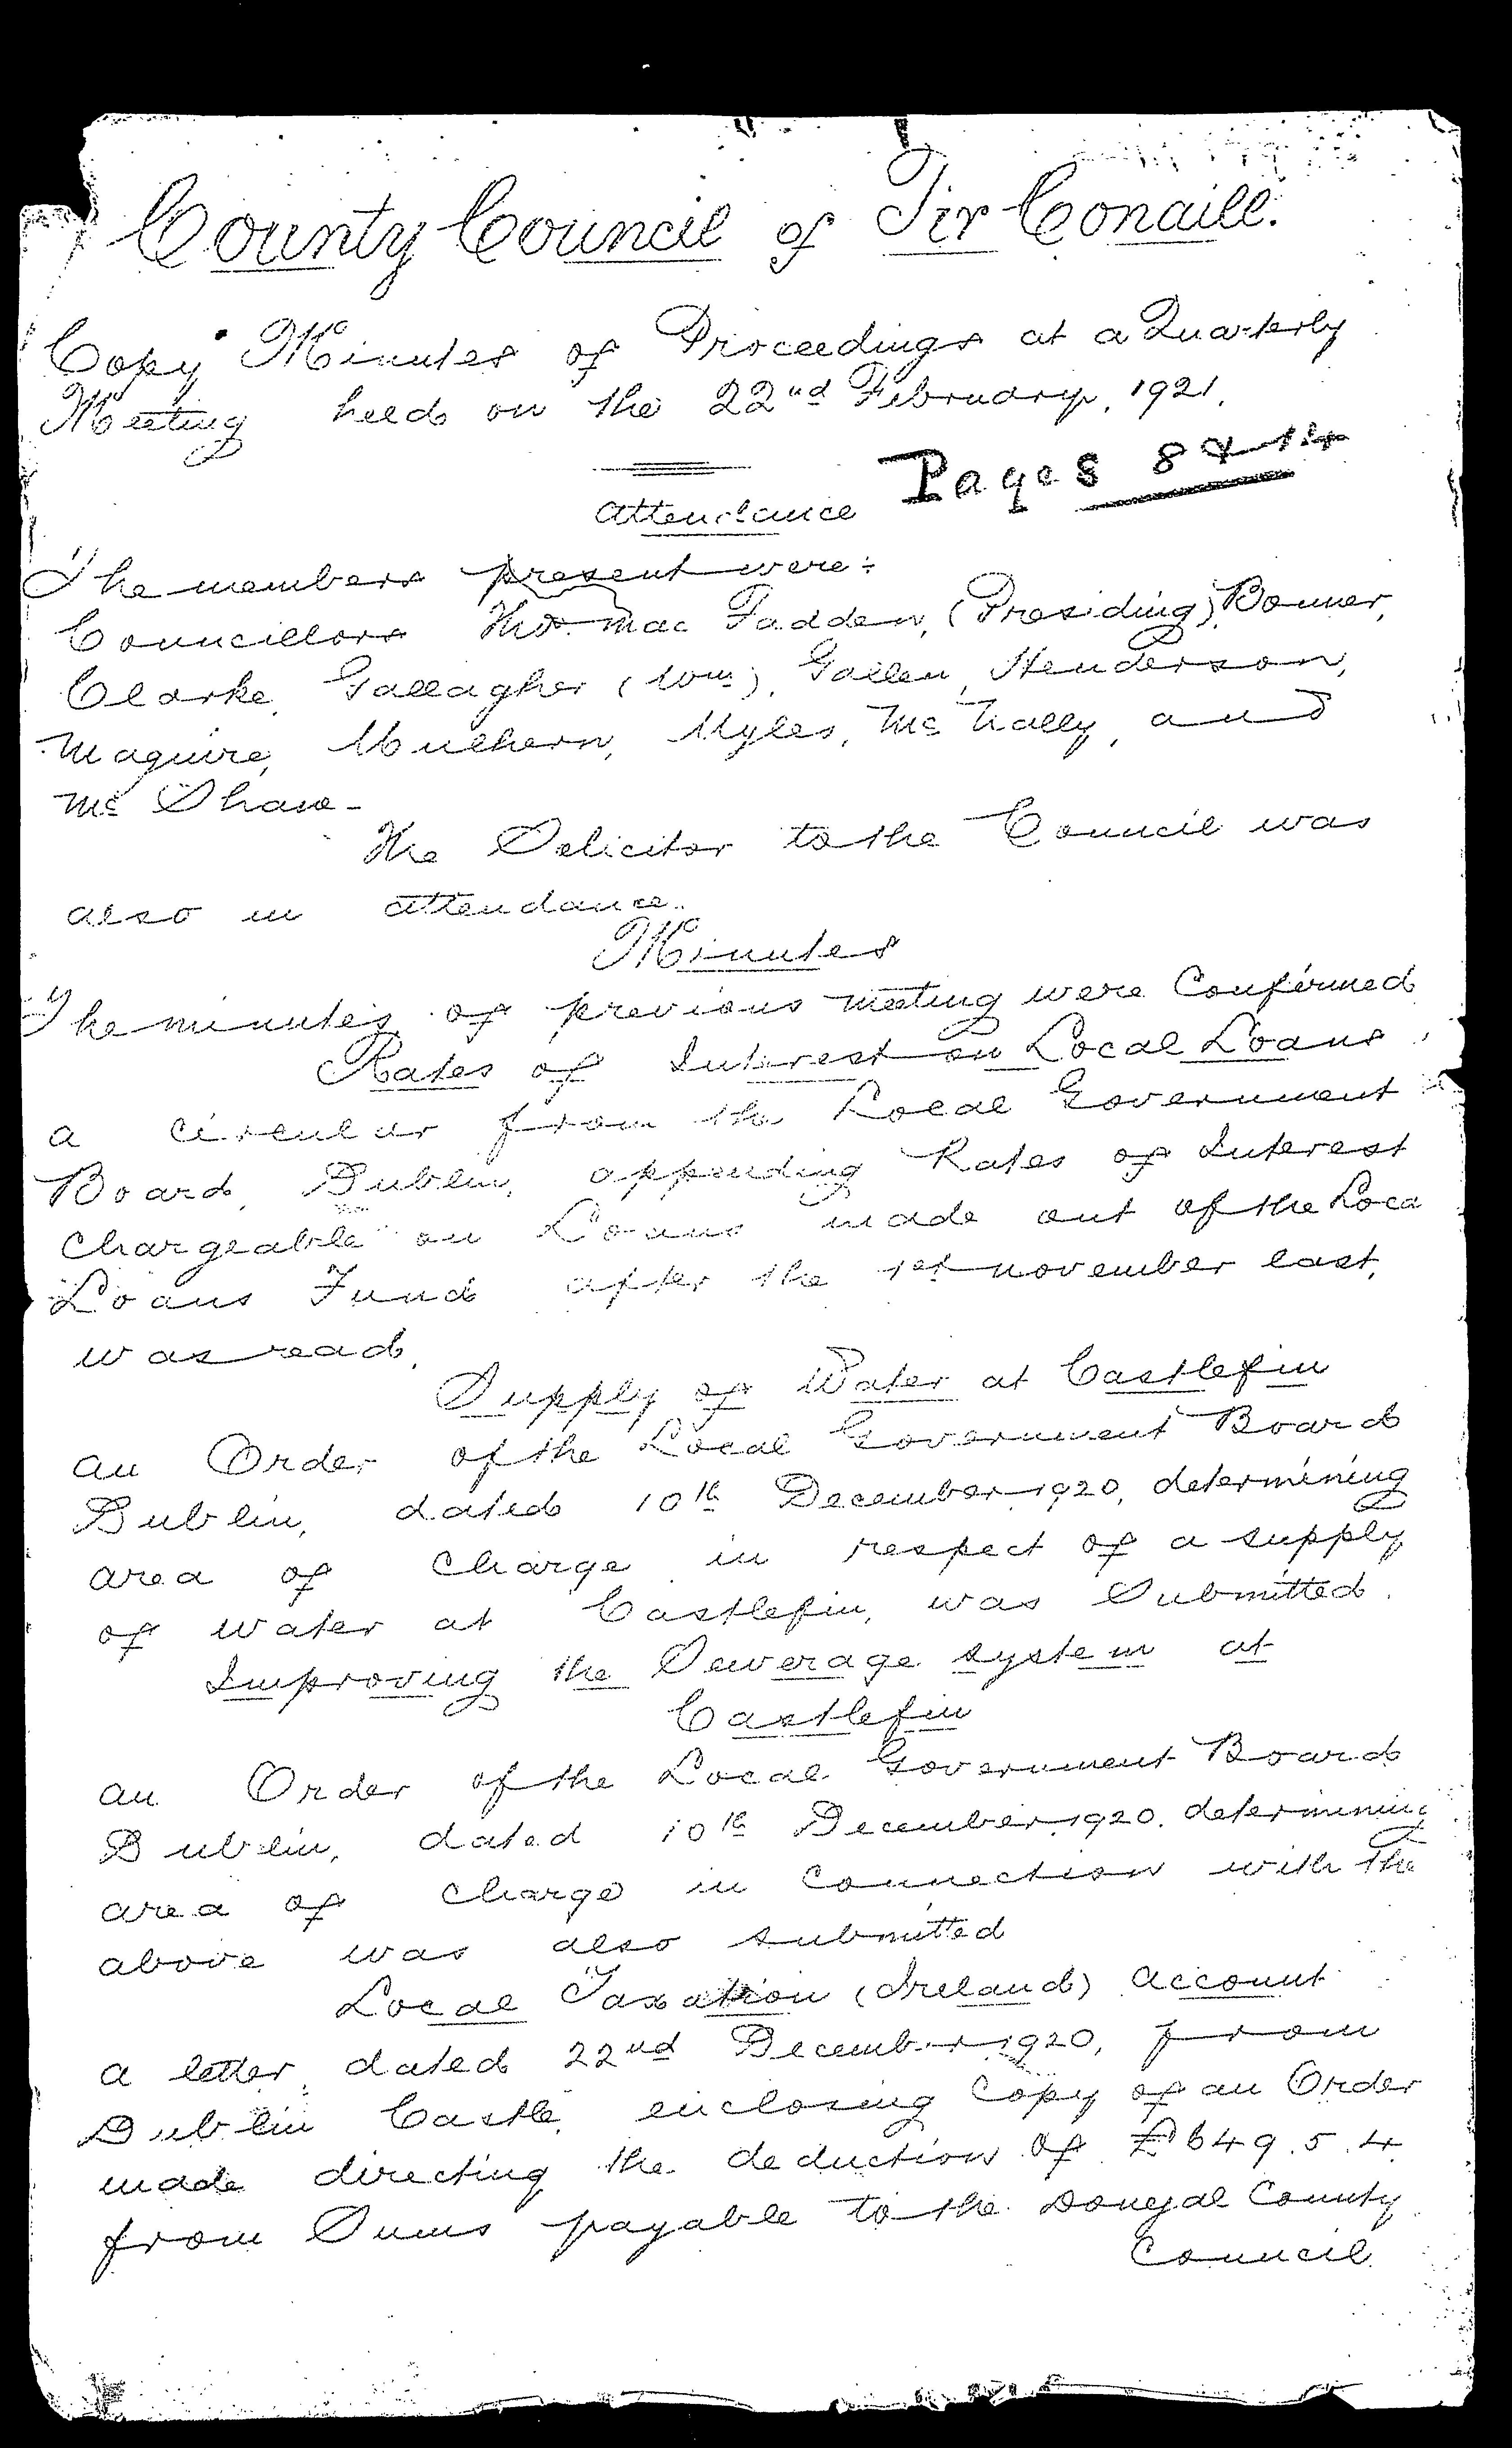 County Council of Tir Conaill.
Copy Minutes of Proceedings at a Quarterly
Meeting held on the 22nd February, 1921.
Pages 8 & 14
Attendance
The members present were:
Councillors Thos. Mac Fadden, (Presiding), Bonner,
Clarke, Gallagher (Wm), Gallen, Henderson,
Maguire, Mulhern, Myles, McNally, and
Mc Shane-
The Solicitor to the Council was
also in attendance.
Minutes
The minutes of previous meeting were Confirmed
Rates of Interest on Local Loans
a circular from the Local Government
Board, Dublin, appending Rates of Interest
Chargeable on Loans made out of the Loca
Loans Fund after the 1st november last,
was read.
Supply of Water at Castlefin
an Order of the Local Government Board
Dublin, dated 10th December 1920, determining
area of Charge in respect of a supply
of water at Castlefin, was Submitted.
Improving the Sewerage system at
Castlefin
an Order of the Local Government Board
Dublin, dated 10th December, 1920. determining
area of Charge in Connection with the
above was also submitted
Local Taxation (Ireland) Account
a letter dated 22nd December 1920, from
Dublin Castle, enclosing Copy of an Order
made directing the deduction of £649.5.4
from Sums payable to the Donegal County
Council